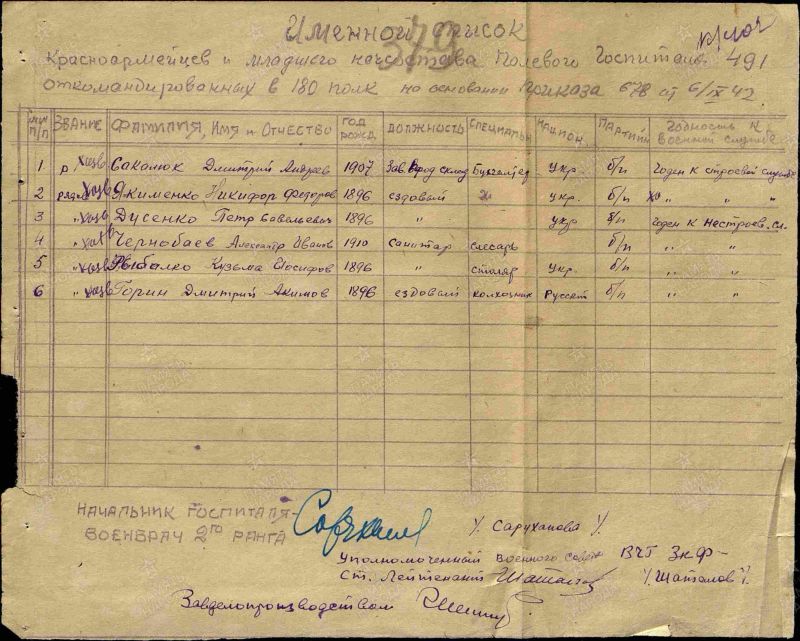 Именной список
379
Красноармейцев и младшего начсостава Полевого Госпиталя 491
откомандированных в 180 полк на основании Приказа 678 от 6/IX 42.
№№ п/п ЗВАНИЕ ФАМИЛИЯ, ИМЯ и ОТЧЕСТВО ГОД РОЖД. ДОЛЖНОСТЬ СПЕЦИАЛЬН НАЦИОН. ПАРТИЙН ГОДНОСТЬ К ВОЕННОЙ СЛУЖБЕ
1 Сакалюк Дмитрий Андреев 1907 Зав. прод склад Бухгалтер укр. б/п Годен к строевой службе
2 Якименко Никифор Федоров 1896 ездовый укр. б/п " "
3 " Дусенко Петр Савельевич 1896 " укр б/п Годен к нестроев. сл.
4 " Чернобаев Александр Иванов 1910 Санитар слесарь б/п " "
5 " Рыбалко Кузьма Иосифов 1896 " столяр укр. б/п " "
6 " Горин Дмитрий Акимов 1896 ездовый колхозник Русский б/п " "
НАЧАЛЬНИК ГОСПИТАЛЯ-
ВОЕНВРАЧ 2го РАНГА /. Саруханова /.
Уполномоченный Военного совета ВЧГ ЗКФ-
Ст. Лейтенант Шаталов /. Шаталов /.
Завделопроизводством
ПАМЯТЬ НАРОДА